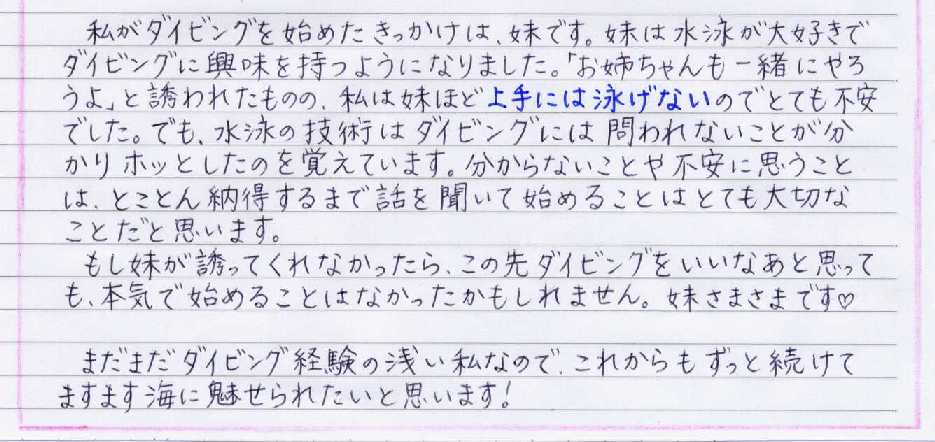 私がダイビングを始めたきっかけは、妹です。妹は水泳が大好きで
ダイビングに興味を持つようになりました。「お姉ちゃんも一緒にやろ
うよ」と誘われたものの、私は妹ほど上手には泳げないのでとても不安
でした。でも、水泳の技術はダイビングには問われないことが分
かりホッとしたのを覚えています。分からないことや不安に思うこと
は、とことん納得するまで話を聞いて始めることはとても大切な
ことだと思います。
もし妹が誘ってくれなかったら、この先ダイビングをいいなあと思って
も、本気で始めることはなかったかもしれません。妹さまさまです♡
まだまだダイビング経験の浅い私なので、これからもずっと続けて
ますます海に魅せられたいと思います！